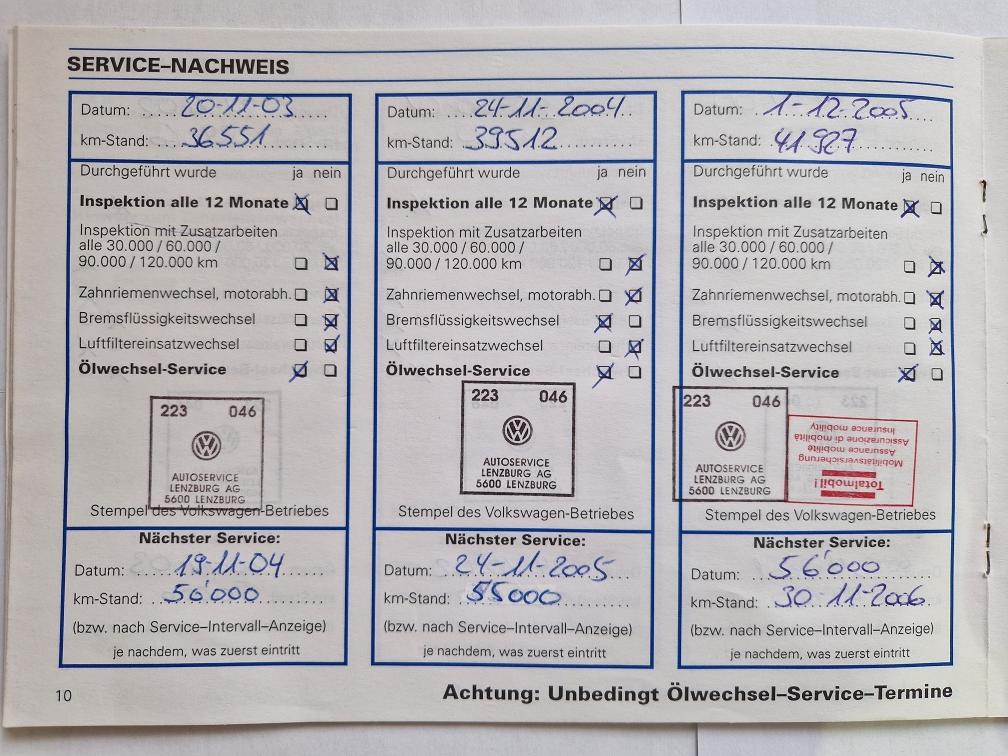 SERVICE–NACHWEIS
Datum: 20-11-03
km-Stand: 36551
Durchgeführt wurde ja nein
Inspektion alle 12 Monate
Inspektion mit Zusatzarbeiten
alle 30.000 / 60.000 /
90.000 / 120.000 km
Zahnriemenwechsel, motorabh.
Bremsflüssigkeitswechsel
Luftfiltereinsatzwechsel
Ölwechsel-Service
223 046
AUTOSERVICE
LENZBURG AG
5600 LENZBURG
Stempel des Volkswagen-Betriebes
Nächster Service:
Datum: 19-11-04
km-Stand: 50'000
(bzw. nach Service–Intervall–Anzeige)
je nachdem, was zuerst eintritt
Datum: 24-11-2004
km-Stand: 39512
Durchgeführt wurde ja nein
Inspektion alle 12 Monate
Inspektion mit Zusatzarbeiten
alle 30.000 / 60.000 /
90.000 / 120.000 km
Zahnriemenwechsel, motorabh.
Bremsflüssigkeitswechsel
Luftfiltereinsatzwechsel
Ölwechsel-Service
223 046
AUTOSERVICE
LENZBURG AG
5600 LENZBURG
Stempel des Volkswagen-Betriebes
Nächster Service:
Datum: 24-11-2005
km-Stand: 55000
(bzw. nach Service–Intervall–Anzeige)
je nachdem, was zuerst eintritt
Datum: 1-12.2005
km-Stand: 41.927
Durchgeführt wurde ja nein
Inspektion alle 12 Monate
Inspektion mit Zusatzarbeiten
alle 30.000 / 60.000 /
90.000 / 120.000 km
Zahnriemenwechsel, motorabh.
Bremsflüssigkeitswechsel
Luftfiltereinsatzwechsel
Ölwechsel-Service
223 046
AUTOSERVICE
LENZBURG AG
5600 LENZBURG
Totalmobil!
Mobilitätsversicherung
Assurance mobilité
Assicurazione di mobilità
Insurance mobility
Stempel des Volkswagen-Betriebes
Nächster Service:
Datum: 56'000
km-Stand: 30-11-2006
(bzw. nach Service–Intervall–Anzeige)
je nachdem, was zuerst eintritt
10
Achtung: Unbedingt Ölwechsel–Service–Termine